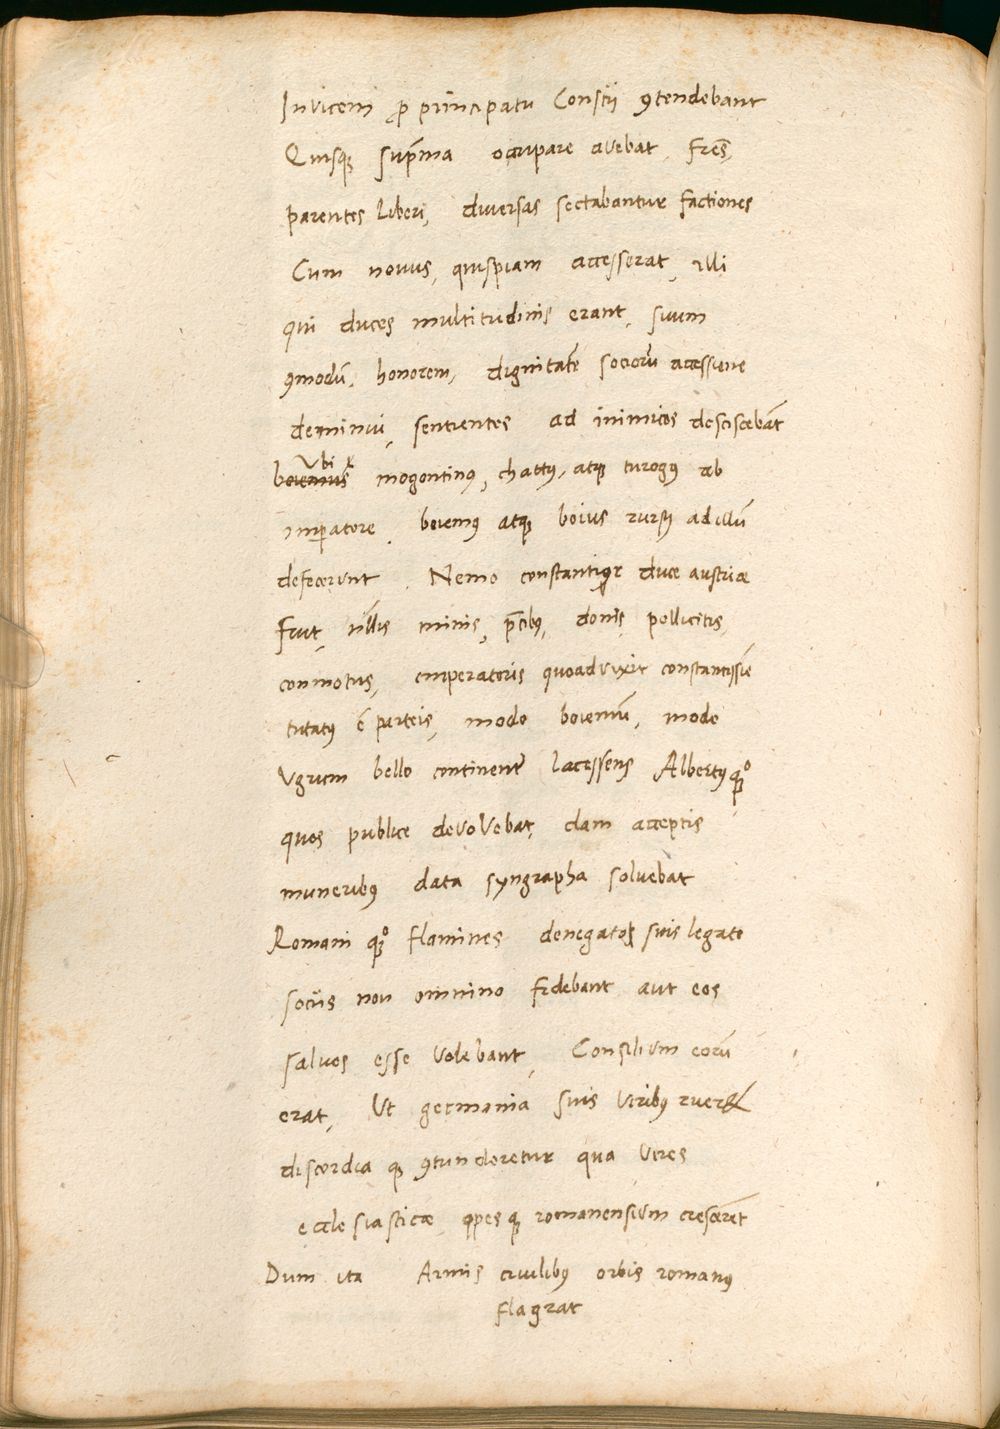 Invicem ꝓ principatu Conscii ꝯtendebant
Quisqꝫ sup̄ma occupare avebat, fres̄,
parentes liberi, diversas sectabantur factiones
Cum novus, quispiam accesserat, illi
qui duces multitudinis erant, suum
ꝯmodū, honorem, dignitatē socioꝝ accessione
deminui, sentientes ad inimicos desciscebāt
Vbi mogontinꝰ, chattꝰ, atqꝫ turogꝰ ab
imꝑatore, boiemꝰ atqꝫ boius rursꝰ ad illū
defecerunt. Nemo constantior duce austriæ
fuit, nullis minis, p̄cibꝰ, donis, pollicitis,
conmotus, imperatoris quoad vixit constantissime
tutatꝰ ē parteis, modo boiemū, modo
Vgrum bello continenter lacessens Albertꝰ qꝫº
quos publice devovebat, clam acceptis
muneribꝰ data syngrapha solvebat
Romani qꝫº flamines denegatoꝝ suis legato
sociis non omnino fidebant aut eos
salvos esse volebant, Consilium eorū
erat, Vt germania suis viribꝰ rueret
discordia qꝫ ꝯtunderetur qua vires
ecclesiasticæ opes qꝫ romanensium crescerēt
Dum ita Armis civilibꝰ orbis romanꝰ
flagrat